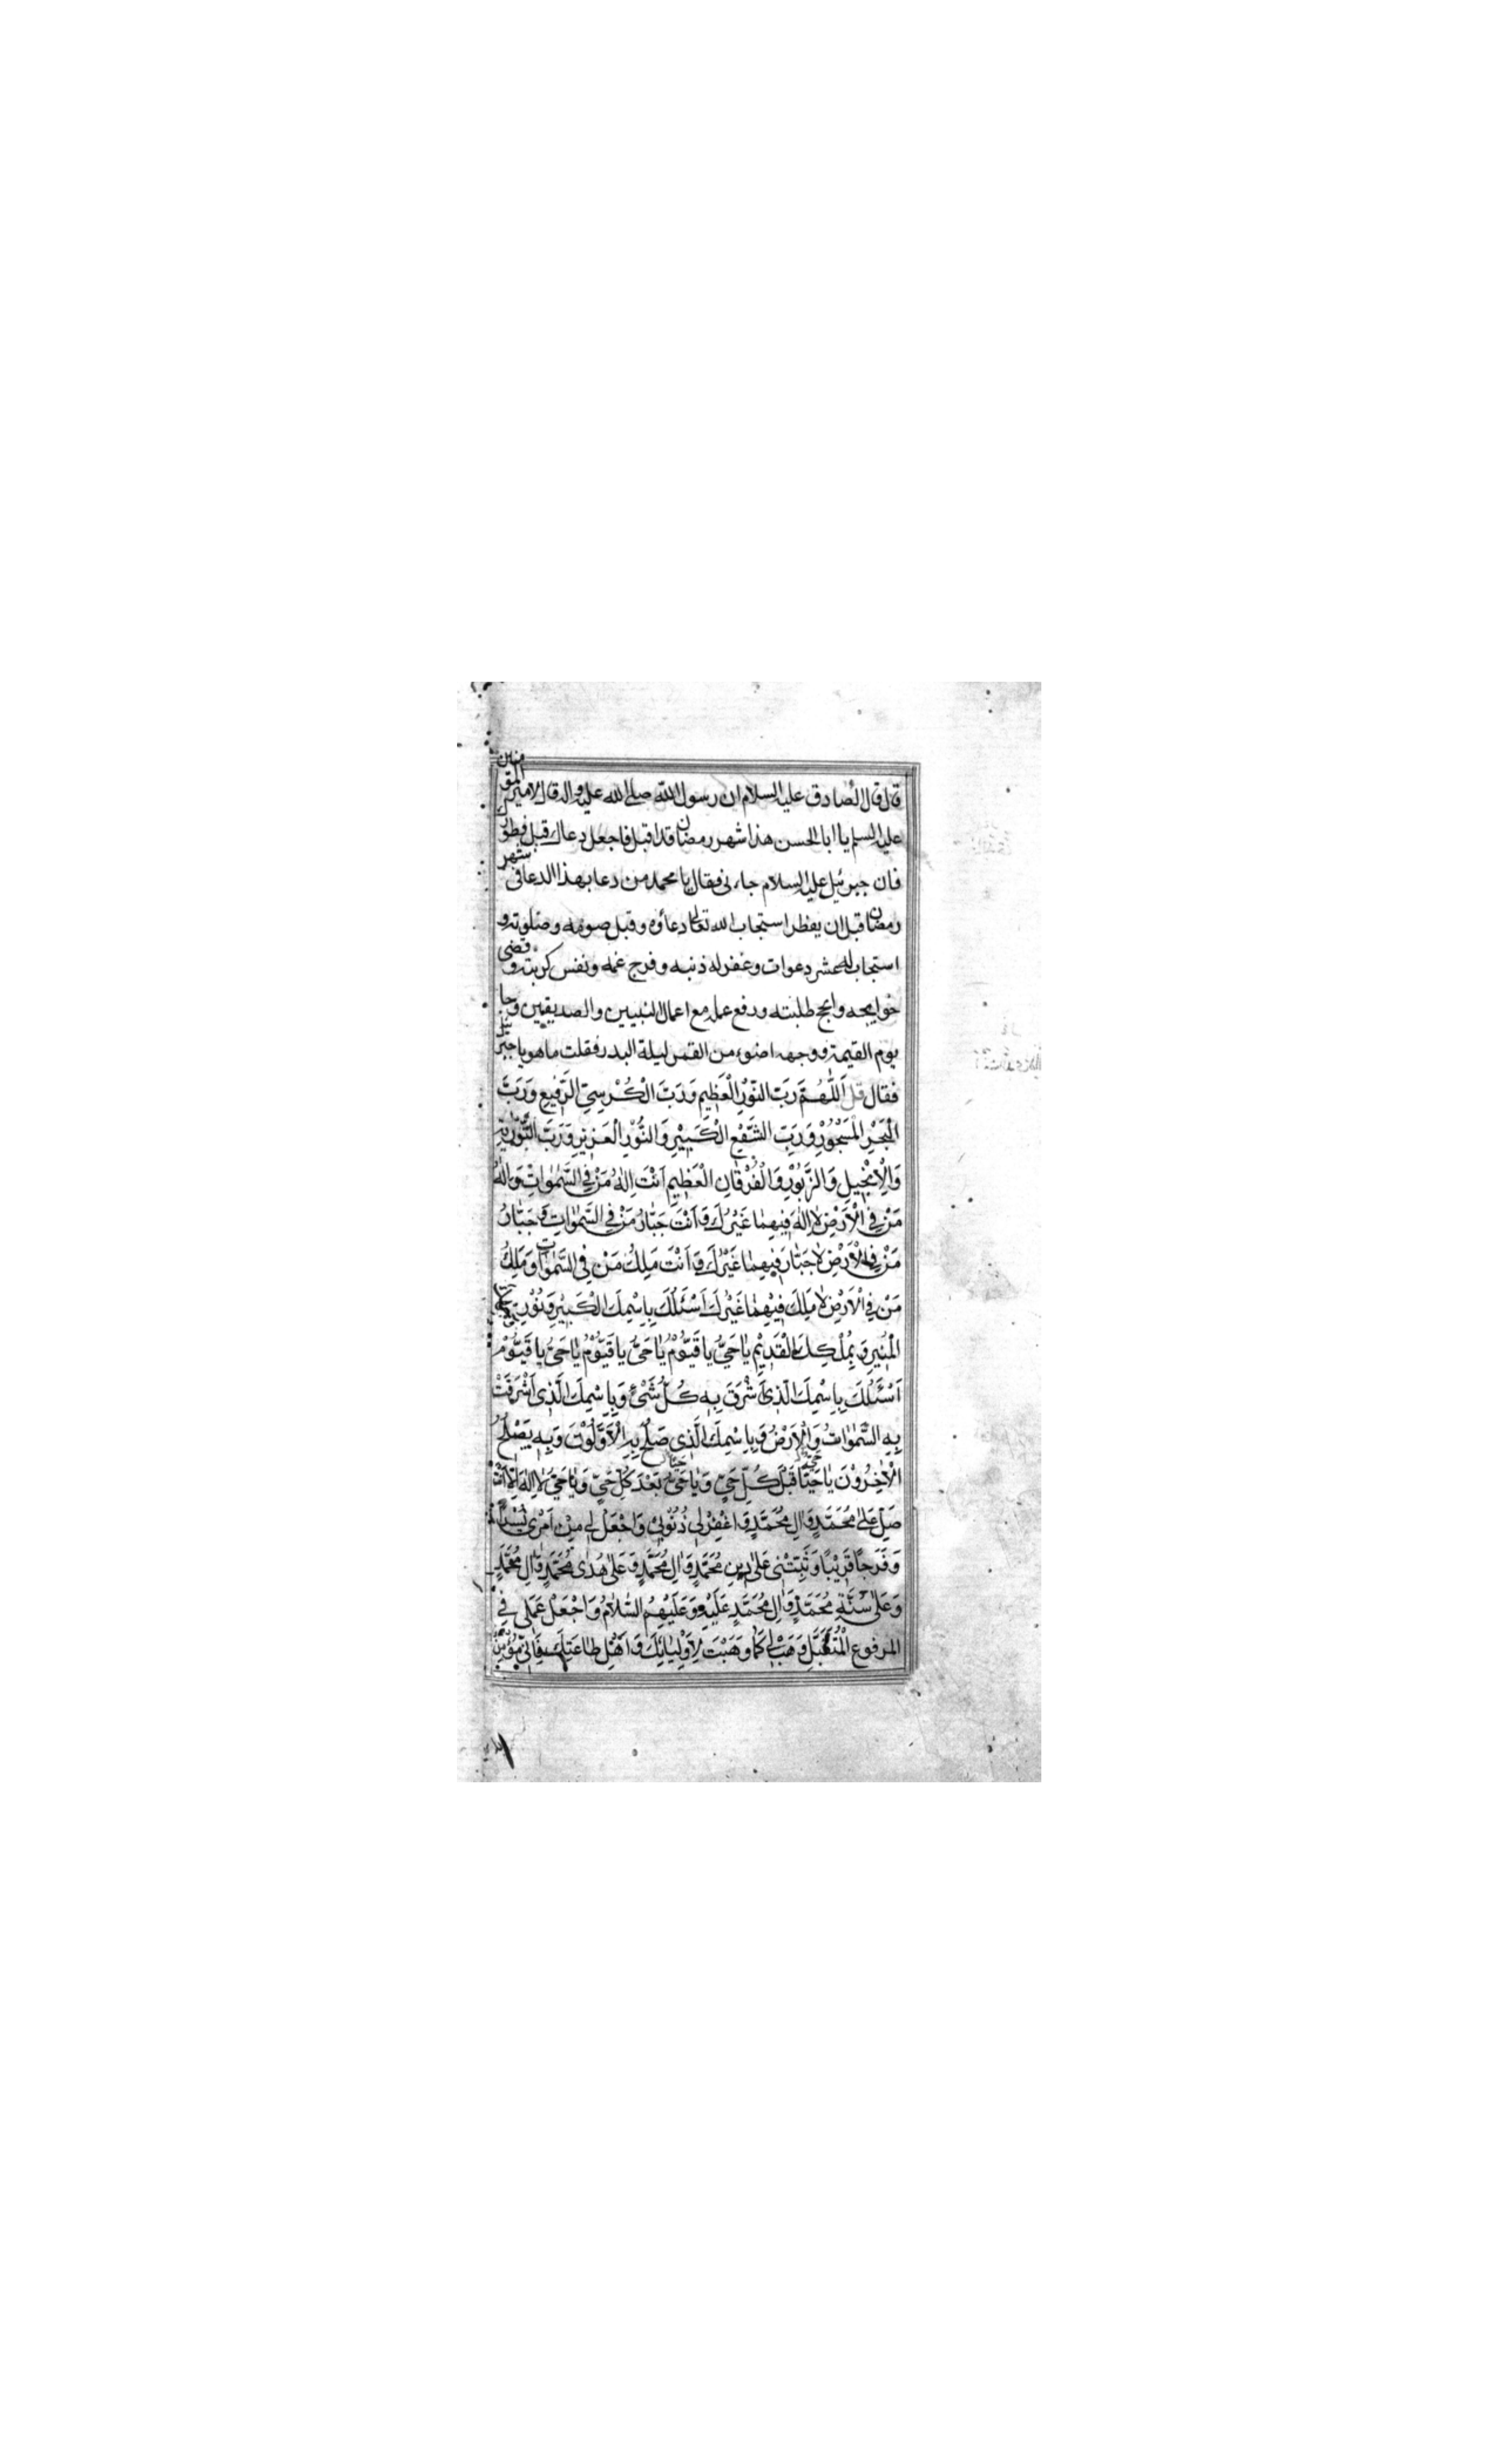 قال قال الصادق عليه السلام ان رسول الله صلى الله عليه واله قال لامير المؤمنين
عليه السلم يا ابا الحسن هذا شهر رمضان قد اقبل فاجعل دعاك قبل فطورك
فان جبرئيل عليه السلام جاءنى فقال يا محمد من دعا بهذا الدعا فى شهر
رمضان قبل ان يفطر استجاب الله تعالى دعاؤه وقبل صومه وصلوته و
استجاب له عشر دعوات وغفر له ذنبه وفرج غمه ونفس كربته و قضى
حوايجه وانجح طلبته ورفع عمله مع اعمال النبيين والصديقين وجا
يوم القيمة ووجهه اضوء من القمر ليلة البدر فقلت ما هو يا جبرئيل
فقال قل اَللّٰهُمَّ رَبَّ النُّوْرِ الْعَظِيْمِ وَرَبَّ الْكُرْسِيِّ الرَّفِيْعِ وَرَبَّ
الْبَحْرِ الْمَسْجُوْرِ وَرَبَّ الشَّفْعِ الْكَبِيْرِ وَالنُّوْرِ الْعَزِيْزِ وَرَبَّ التَّوْرٰيةِ
وَالْاِنْجِيْلِ وَالزَّبُوْرِ وَالْفُرْقَانِ الْعَظِيْمِ اَنْتَ اِلٰهُ مَنْ فِي السَّمٰوَاتِ وَاِلٰهُ
مَنْ فِي الْاَرْضِ لَا اِلٰهَ فِيْهِمَا غَيْرُكَ وَاَنْتَ جَبَّارُ مَنْ فِي السَّمٰوَاتِ وَجَبَّارُ
مَنْ فِي الْاَرْضِ لَا جَبَّارَ فِيْهِمَا غَيْرُكَ وَاَنْتَ مَلِكُ مَنْ فِي السَّمٰوَاتِ وَمَلِكُ
مَنْ فِي الْاَرْضِ لَا مَلِكَ فِيْهِمَا غَيْرُكَ اَسْئَلُكَ بِاسْمِكَ الْكَبِيْرِ وَنُوْرِ وَجْهِكَ
الْمُنِيْرِ وَبِمُلْكِكَ الْقَدِيْمِ يَا حَيُّ يَا قَيُّوْمُ يَا حَيُّ يَا قَيُّوْمُ يَا حَيُّ يَا قَيُّوْمُ
اَسْئَلُكَ بِاسْمِكَ الَّذِي اَشْرَقَ بِهِ كُلُّ شَيْءٍ وَبِاسْمِكَ الَّذِي اَشْرَقَتْ
بِهِ السَّمٰوَاتُ وَالْاَرْضُ وَبِاسْمِكَ الَّذِي صَلَحَ بِهِ الْاَوَّلُوْنَ وَبِهِ يَصْلَحُ
الْاٰخِرُوْنَ يَا حَيًّا قَبْلَ كُلِّ حَيٍّ وَيَا حَيُّ بَعْدَ كُلِّ حَيٍّ وَيَا حَيُّ لَا اِلٰهَ اِلَّا اَنْتَ
صَلِّ عَلٰى مُحَمَّدٍ وَاٰلِ مُحَمَّدٍ وَاغْفِرْ لِي ذُنُوْبِي وَاجْعَلْ لِي مِنْ اَمْرِي يُسْرًا
وَفَرَجًا قَرِيْبًا وَثَبِّتْنِي عَلٰى دِيْنِ مُحَمَّدٍ وَاٰلِ مُحَمَّدٍ وَعَلٰى هُدٰى مُحَمَّدٍ وَاٰلِ مُحَمَّدٍ
وَعَلٰى سُنَّةِ مُحَمَّدٍ وَاٰلِ مُحَمَّدٍ عَلَيْهِ وَعَلَيْهِمُ السَّلَامُ وَاجْعَلْ عَمَلِي فِي
المرفوع الْمُتَقَبَّلِ وَهَبْ لِي كَمَا وَهَبْتَ لِاَوْلِيَائِكَ وَاَهْلِ طَاعَتِكَ فَاِنِّي مُؤْمِنٌ